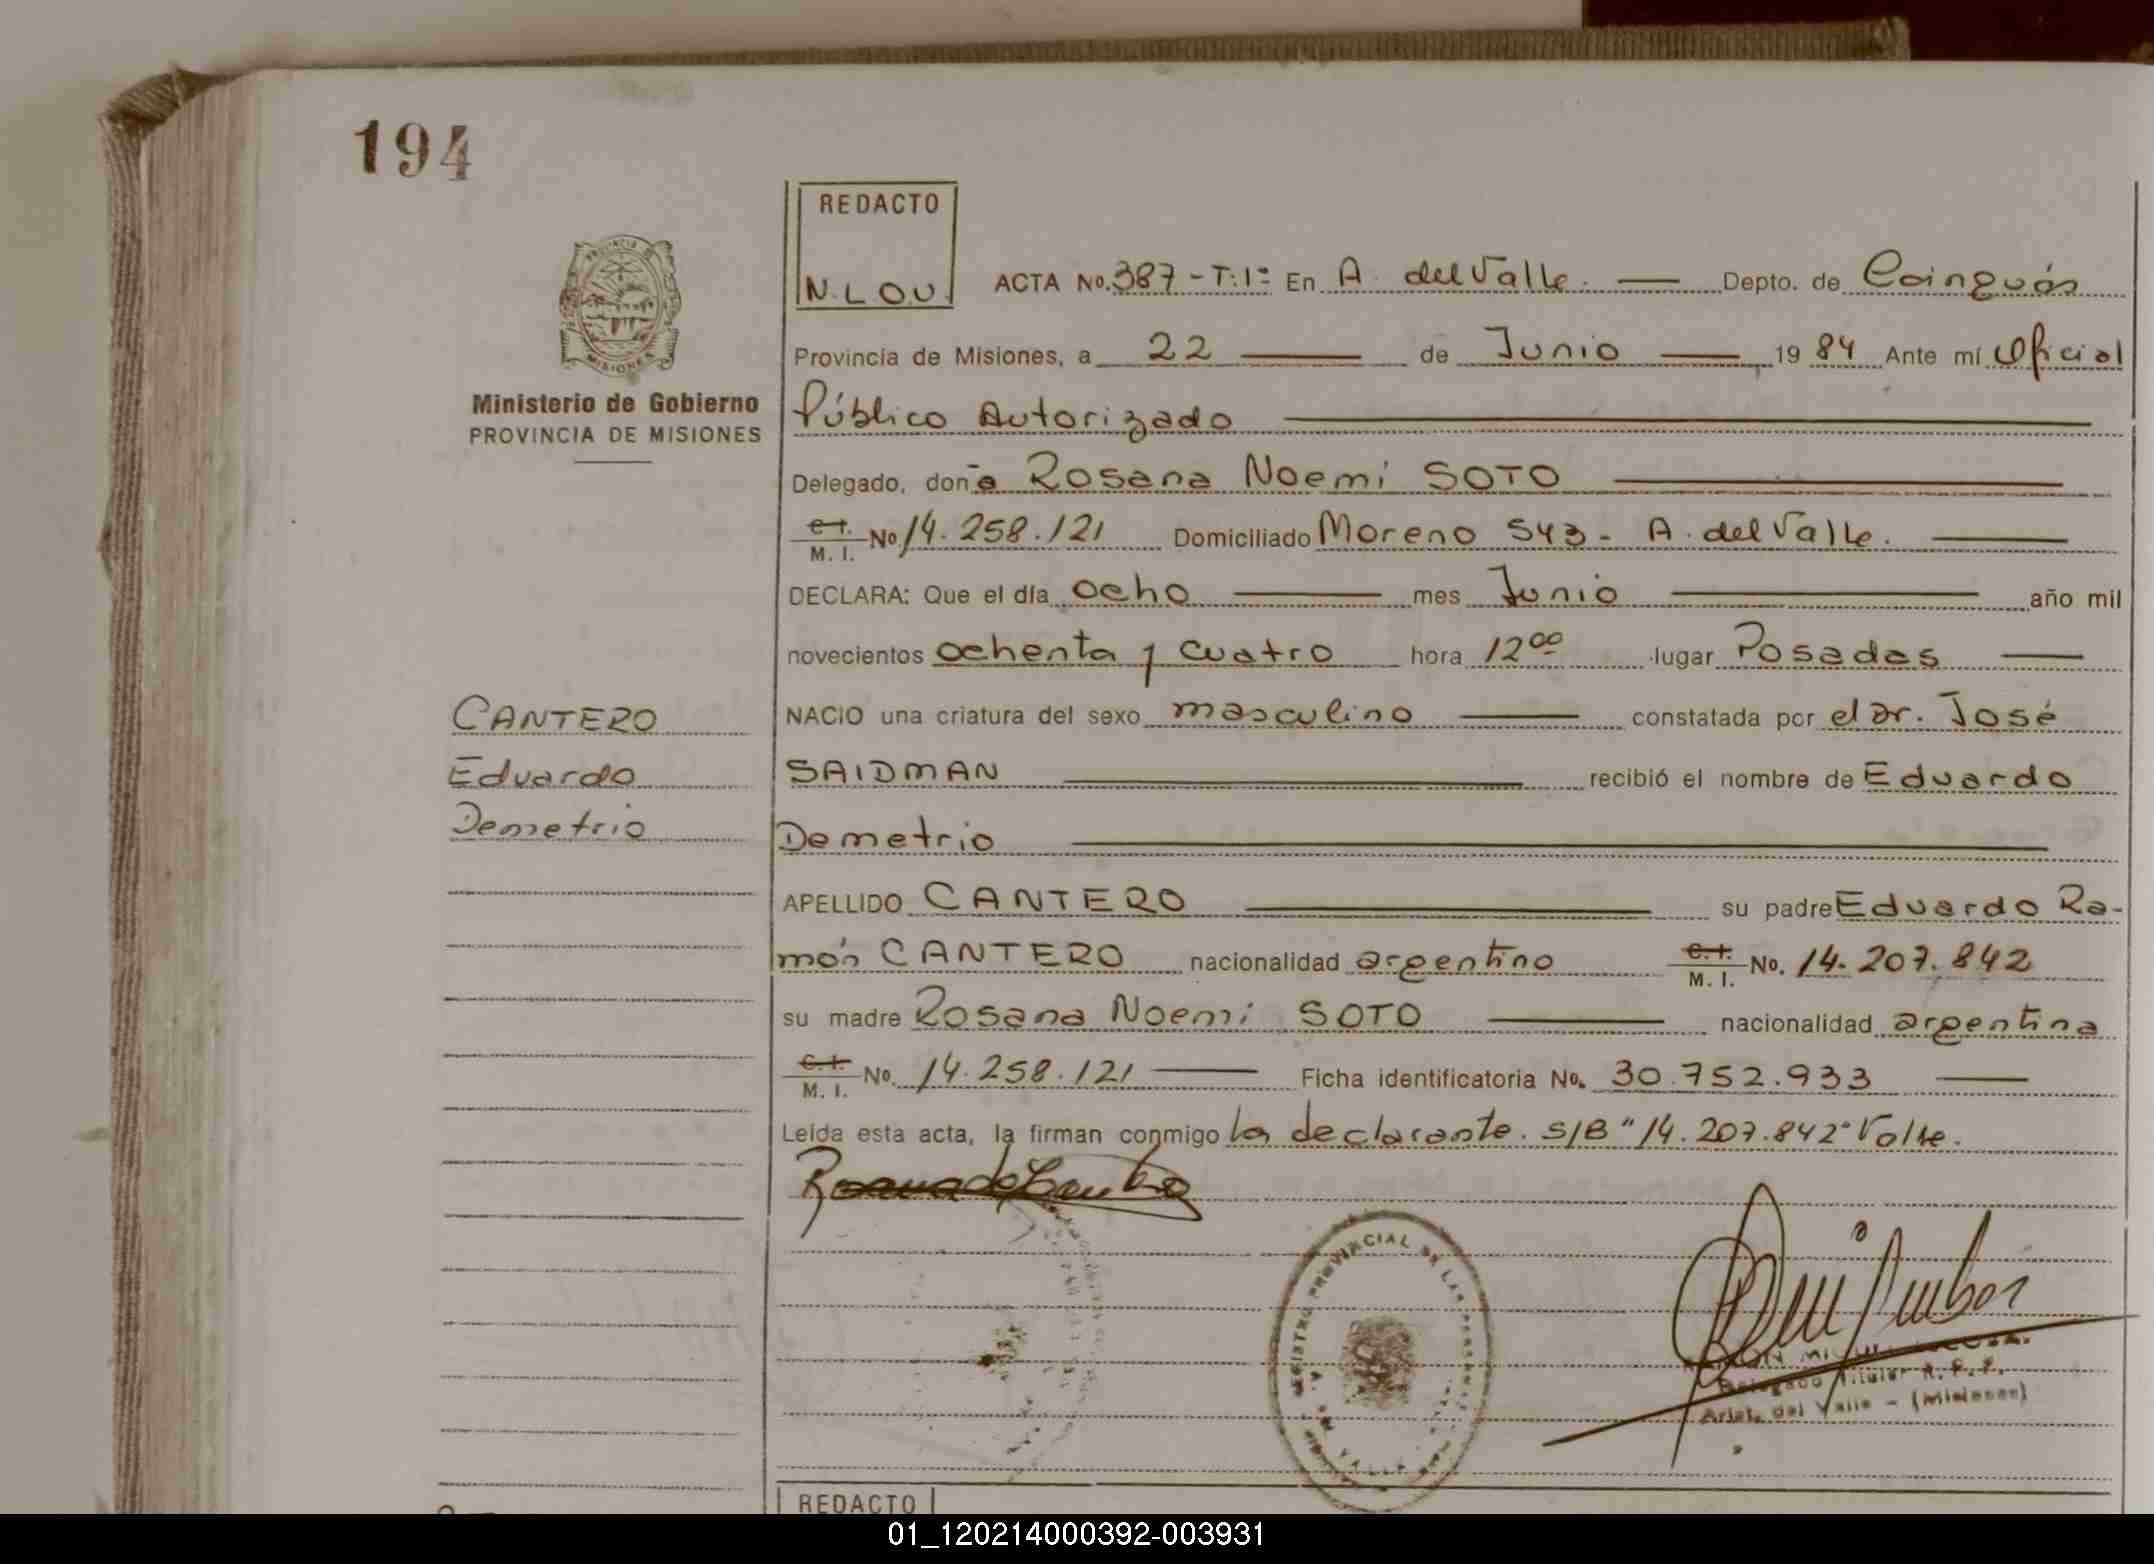 194
REDACTO
N.L.O.U.
PROVINCIA DE
MISIONES
Ministerio de Gobierno
PROVINCIA DE MISIONES
ACTA No. 387 - T: 1º En A. del Valle. — Depto. de Cainguás
Provincia de Misiones, a 22 — de Junio — 19 84 Ante mí Oficial
Público Autorizado
Delegado, doña Rosana Noemi SOTO
C.I. M. I. No 14.258.121 Domiciliado Moreno 543 - A. del Valle. —
DECLARA: Que el día ocho — mes Junio — año mil
novecientos ochenta y cuatro hora 12 00 lugar Posadas —
CANTERO
Eduardo
Demetrio
NACIO una criatura del sexo masculino — constatada por el dr. José
SAIDMAN — recibió el nombre de Eduardo
Demetrio
APELLIDO CANTERO — su padre Eduardo Ra-
món CANTERO nacionalidad argentino C.I. M. I. No. 14.207.842
su madre Rosana Noemi SOTO — nacionalidad argentina
C.I. M. I. No. 14.258.121 — Ficha identificatoria No. 30.752.933 —
Leída esta acta, la firman conmigo la declarante. S/B "14.207.842" Valle.
REGISTRO PROVINCIAL DE LAS PERSONAS
Delegado Titular R. P. P.
Arist. del Valle - (Misiones)
REDACTO
01_120214000392-003931